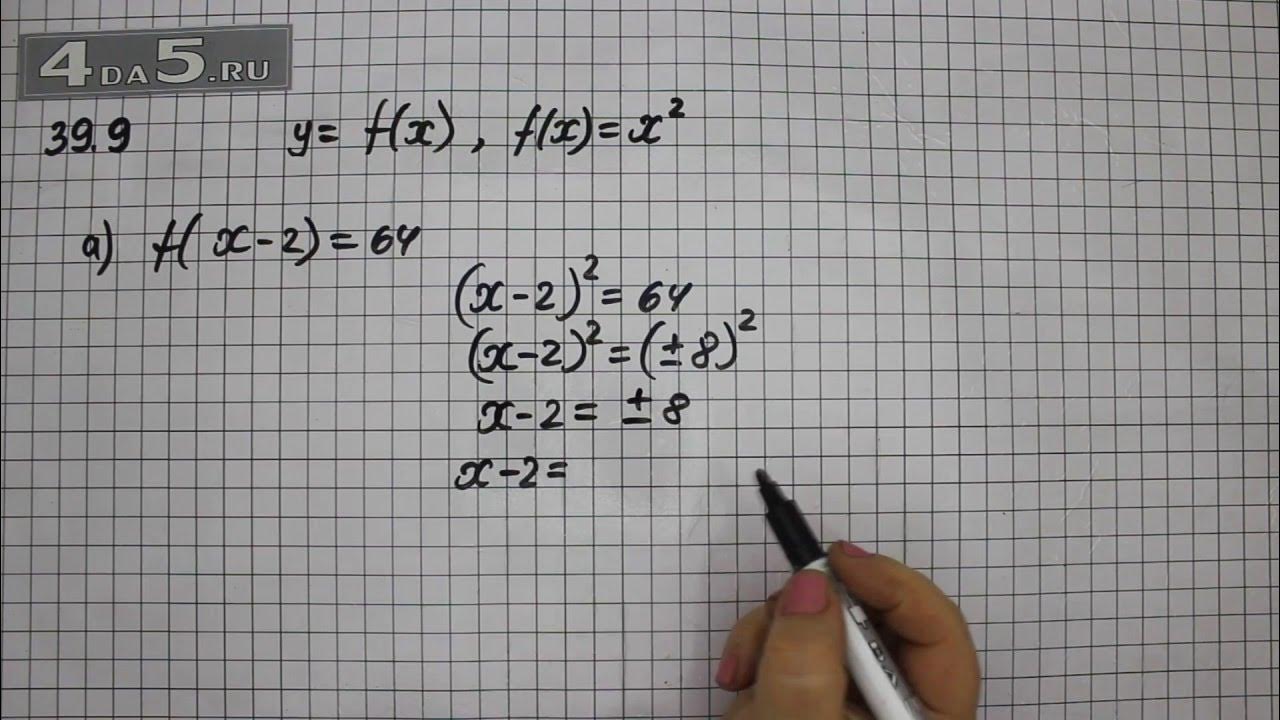 4DA5.RU
39.9 y= f(x), f(x)=x²
а) f(x-2)=64
(x-2)²=64
(x-2)²=(±8)²
x-2=±8
x-2=